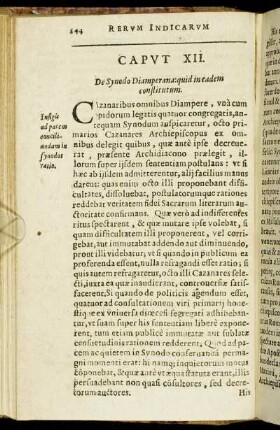 244 RERVM INDICARVM
CAPVT XII.
De Synodo Diamperana: quid in eadem
constitutum.
Insigne
ad pacem
concili-
andam in
synodos
ratio.
CAzanaribus omnibus Diampere, vnà cum
oppidorum legatis quatuor congregatis, an-
tequam Synodum auspicaretur, octo pri-
marios Cazanares Archiepiscopus ex om-
nibus delegit quibus, quæ antè ipse decreue-
rat, præsente Archidiacono prælegit, il-
lorum super ijsdem sententiam postulans: vt si
hæc ab ijsdem admitterentur, alij facilius manus
darent: quas enim octo illi proponebant diffi-
cultates, dissoluebat, postulatorumque rationes
reddebat veritatem fidei Sacrarum literarum au-
ctoritate confirmans. Quæ verò ad indifferentes
ritus spectarent, & quæ mutare ipse volebat, si
quam difficultatem illi proponerent, vel corri-
gebat, aut immutabat addendo aut diminuendo,
prout illi videbatur, vt si quando in publicum ea
proferenda essent, nulla refragandi esset ratio; si
quis autem refragaretur, octo illi Cazanares sele-
cti, iuxta ea quæ inaudirant, controuersiæ satis-
facerent. Si quando de politicis agendum esset,
quatuor ad consultationem viri primarij hone-
stique ex vniuersa diœcesi segregati adhibeban-
tur, vt suam super his sententiam liberè expone-
rent, tum etiam publicè immutatæ aut sublatæ
consuetudinis rationem redderent. Quod ad pa-
cem ac quietem in Synodo conseruandã perma-
gni momenti erat: hi namq; inquietorum motus
cõponebant, & quæ antè vt æqua statuta erant, illis
persuadebant non quasi cõsultores, sed decre-
torum auctores. His